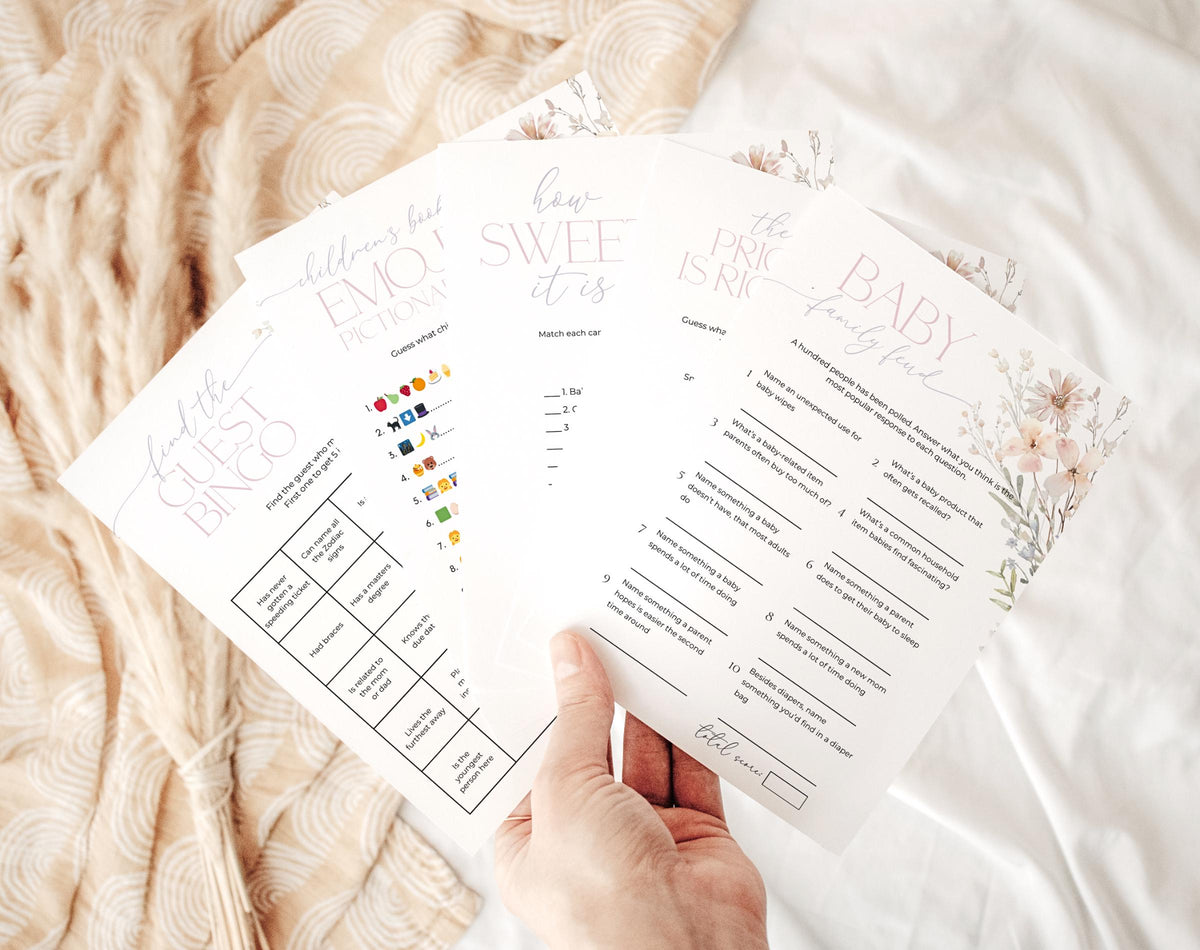 find the
GUEST
BINGO
Find the guest who m
First one to get 5
Is
Can name all
the Zodiac
signs
Has never
gotten a
speeding ticket
Has a masters
degree
Had braces
Knows th
due dat
Is related to
the mom
or dad
Lives the
furthest away
Is the
youngest
person here
children's book
EMOJI
PICTIONA
Guess what chi
1.
2.
3.
4.
5.
6.
7.
8.
how
SWEET
it is
Match each car
1. Ba
2. C
3
the
PRIC
IS RIG
Guess wha
BABY
family feud
A hundred people has been polled. Answer what you think is the
most popular response to each question.
1 Name an unexpected use for
baby wipes
2 What's a baby product that
often gets recalled?
3 What's a baby-related item
parents often buy too much of?
4 What's a common household
item babies find fascinating?
5 Name something a baby
doesn't have, that most adults
do
6 Name something a parent
does to get their baby to sleep
7 Name something a baby
spends a lot of time doing
8 Name something a new mom
spends a lot of time doing
9 Name something a parent
hopes is easier the second
time around
10 Besides diapers, name
something you'd find in a diaper
bag
total score: